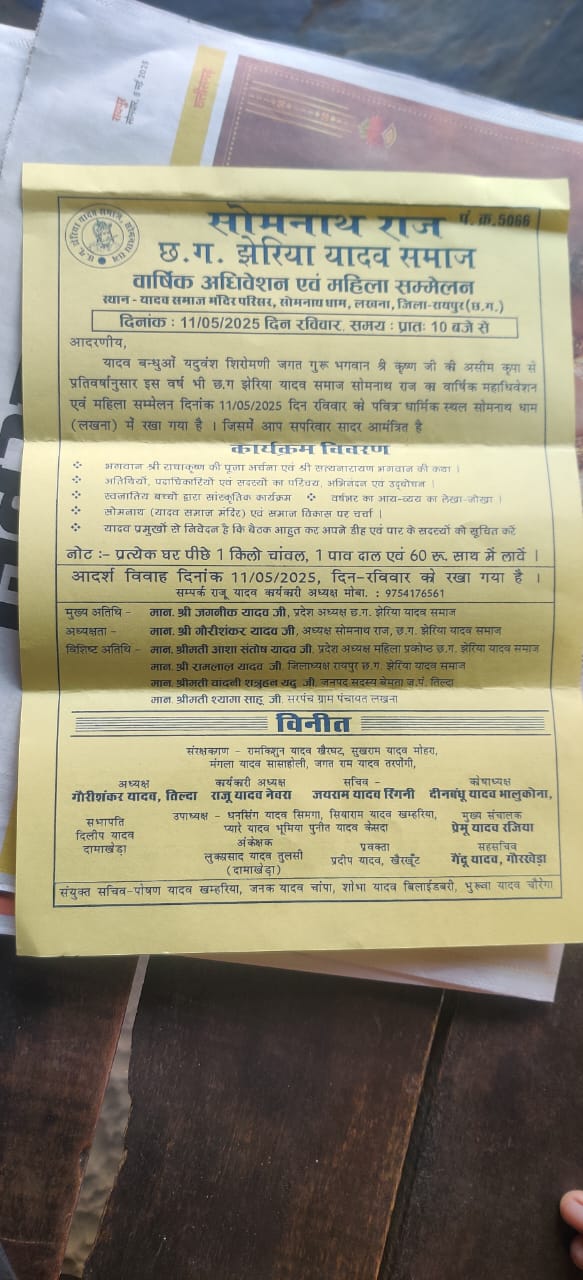 रायपुर
सोमवार, 5 मई 2025
छत्तीसगढ़
सोमनाथ राज
पं. क्र.5066
छ.ग. झेरिया यादव समाज
वार्षिक अधिवेशन एवं महिला सम्मेलन
स्थान - यादव समाज मंदिर परिसर, सोमनाथ धाम, लखना, जिला-रायपुर (छ.ग.)
दिनांक : 11/05/2025 दिन रविवार, समय : प्रातः 10 बजे से
आदरणीय,
यादव बन्धुओं यदुवंश शिरोमणी जगत गुरू भगवान श्री कृष्ण जी की असीम कृपा से
प्रतिवर्षानुसार इस वर्ष भी छ.ग झेरिया यादव समाज सोमनाथ राज का वार्षिक महाधिवेशन
एवं महिला सम्मेलन दिनांक 11/05/2025 दिन रविवार को पवित्र धार्मिक स्थल सोमनाथ धाम
(लखना) में रखा गया है । जिसमें आप सपरिवार सादर आमंत्रित है
कार्यक्रम विवरण
❖ भगवान श्री राधाकृष्ण की पूजा अर्चना एवं श्री सत्यनारायण भगवान की कथा ।
❖ अतिथियों, पदाधिकारियों एवं सदस्यों का परिचय, अभिनंदन एवं उद्बोधन ।
❖ स्वजातिय बच्चों द्वारा सांस्कृतिक कार्यक्रम ❖ वर्षभर का आय-व्यय का लेखा-जोखा ।
❖ सोमनाथ (यादव समाज मंदिर) एवं समाज विकास पर चर्चा ।
❖ यादव प्रमुखों से निवेदन है कि बैठक आहुत कर अपने डीह एवं पार के सदस्यों को सूचित करें
नोट :- प्रत्येक घर पीछे 1 किलो चांवल, 1 पाव दाल एवं 60 रू. साथ में लावें ।
आदर्श विवाह दिनांक 11/05/2025, दिन-रविवार को रखा गया है ।
सम्पर्क राजू यादव कार्यकरी अध्यक्ष मोबा. : 9754176561
मुख्य अतिथि - मान. श्री जगनीक यादव जी, प्रदेश अध्यक्ष छ.ग. झेरिया यादव समाज
अध्यक्षता - मान. श्री गौरीशंकर यादव जी, अध्यक्ष सोमनाथ राज, छ.ग. झेरिया यादव समाज
विशिष्ट अतिथि - मान. श्रीमती आशा संतोष यादव जी, प्रदेश अध्यक्ष महिला प्रकोष्ठ छ.ग. झेरिया यादव समाज
मान. श्री रामलाल यादव जी, जिलाध्यक्ष रायपुर छ.ग. झेरिया यादव समाज
मान. श्रीमती चांदनी शत्रुहन यदु जी, जनपद सदस्य बेमता ज.पं. तिल्दा
मान. श्रीमती श्यामा साहू जी, सरपंच ग्राम पंचायत लखना
विनीत
संरक्षकगण - रामकिशुन यादव खैरघट, सुखराम यादव मोहरा,
मंगला यादव सासाहोली, जगत राम यादव तरपोंगी,
अध्यक्ष कार्यकरी अध्यक्ष सचिव - कोषाध्यक्ष
गौरीशंकर यादव, तिल्दा राजू यादव नेवरा जयराम यादव रिंगनी दीनबंधू यादव भालुकोना,
सभापति उपाध्यक्ष - धनसिंग यादव सिमगा, सियाराम यादव खम्हरिया, मुख्य संचालक
दिलीप यादव प्यारे यादव भूमिया पुनीत यादव केसदा प्रेमू यादव रजिया
दामाखेड़ा अंकेक्षक प्रवक्ता सहसचिव
लुकप्रसाद यादव तुलसी प्रदीप यादव, खैरखूँट गेंदू यादव, गौरखेड़ा
(दामाखेड़ा)
संयुक्त सचिव-पोषण यादव खम्हरिया, जनक यादव चांपा, शोभा यादव बिलाईडबरी, भुरूवा यादव चौरेगा